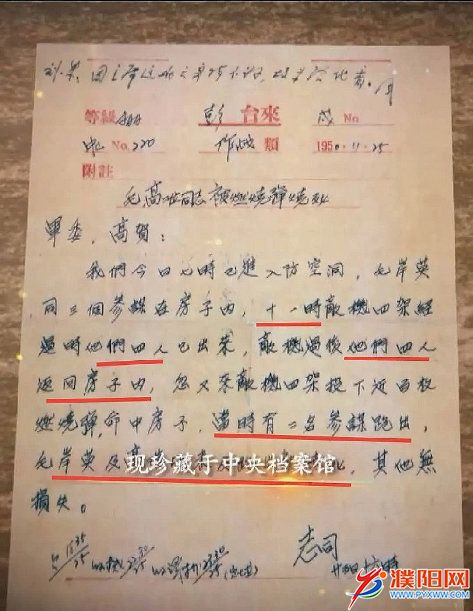 等級
彭台來
No.
No.220
作战類
1950-11-25
附註
毛高二同志被燃燒彈燒死
軍委,高賀:
我們今日七時已進入防空洞,毛岸英
同三個參謀在房子內,十一時敵機四架經
過時他們四人已出來,敵機過後他們四人
返回房子內,忽又來敵機四架投下近百枚
燃燒彈,命中房子,當時有二名參謀跑出,
毛岸英及高
现珍藏于中央档案馆
,其他無
損失。
志司
廿五日十六時
濮阳网
WWW.PYXWW.COM